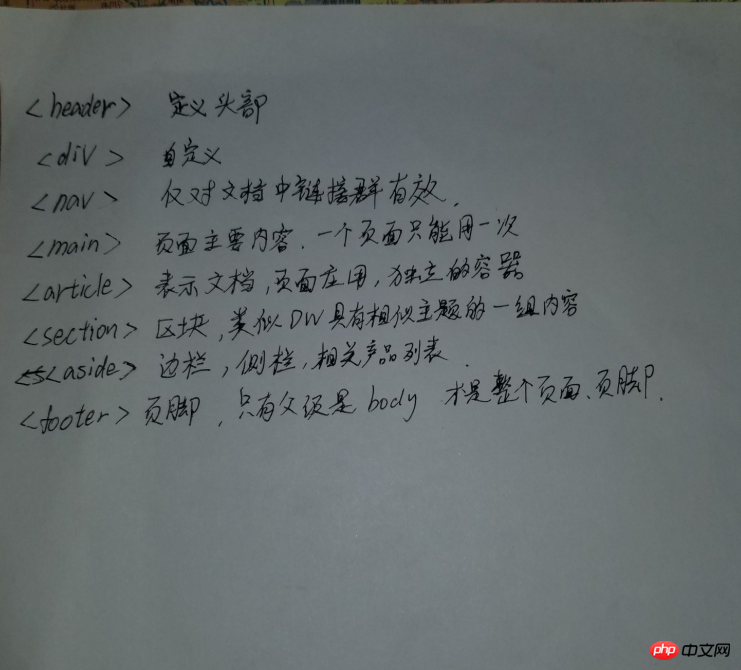 <header> 定义头部
<div> 自定义
<nav> 仅对文档中链接群有效.
<main> 页面主要内容.一个页面只能用一次
<article> 表示文档,页面应用,独立的容器
<section> 区块,类似DW具有相似主题的一组内容
<aside> 边栏,侧栏,相关产品列表.
<footer> 页脚,只有父级是body 才是整个页面、页脚.
php 中文网